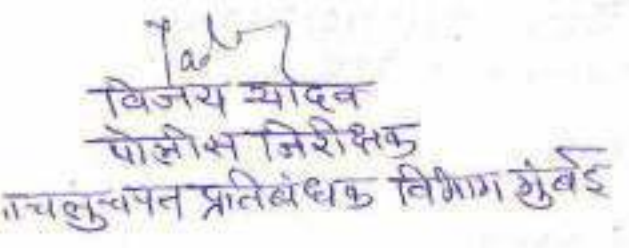 विजय यादव
पोलीस निरीक्षक
लाचलुचपत प्रतिबंधक विभाग मुंबई